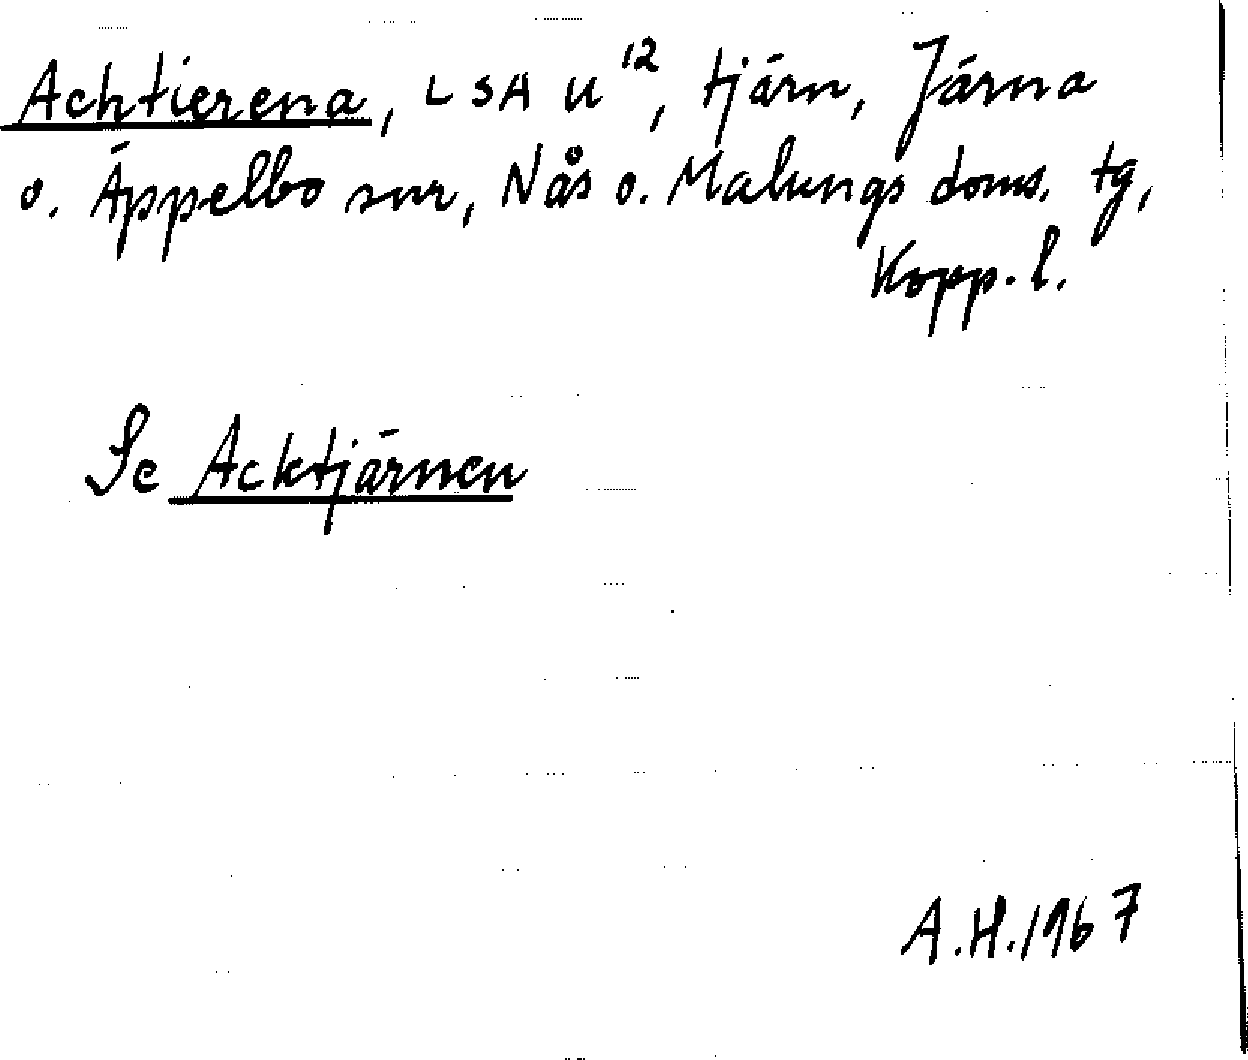 Achtierena, LSA U¹², tjärn, Järna
o. Äppelbo snr, Nås o. Malungs doms. tg,
Kopp. l.
Se Acktjärnen
A.H. 1967